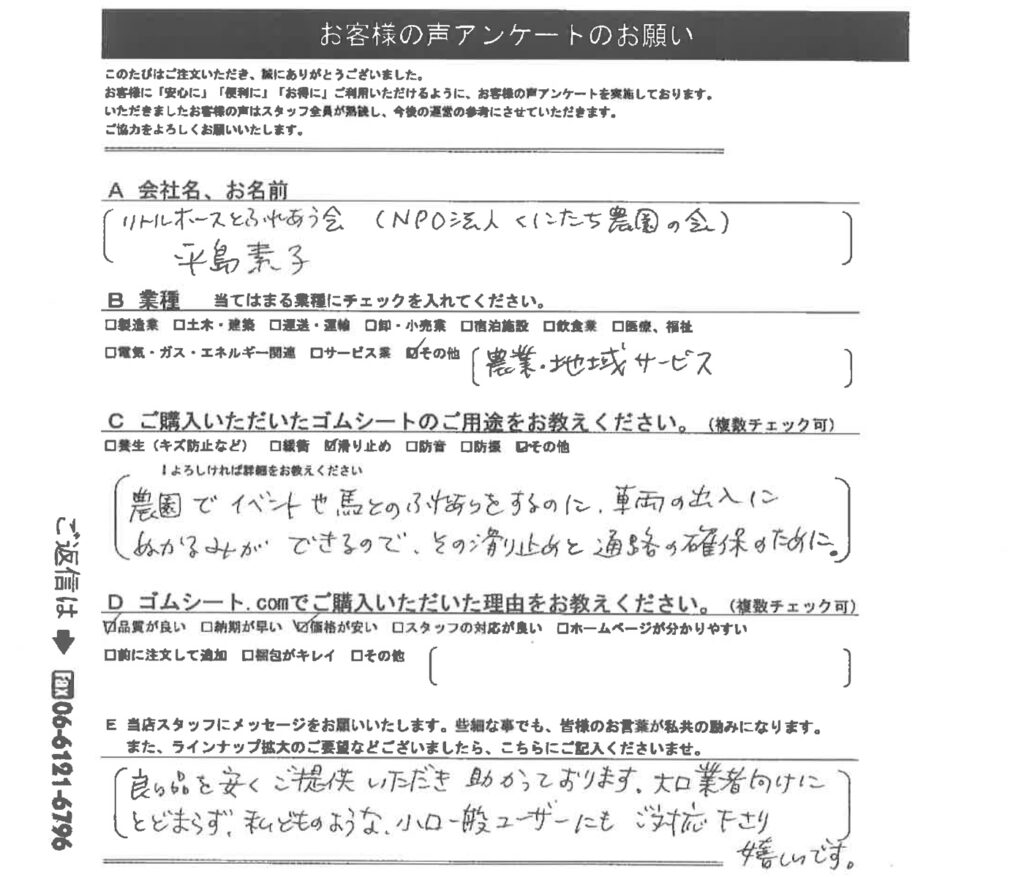 お客様の声アンケートのお願い
このたびはご注文いただき、誠にありがとうございました。
お客様に「安心に」「便利に」「お得に」ご利用いただけるように、お客様の声アンケートを実施しております。
いただきましたお客様の声はスタッフ全員が熟読し、今後の運営の参考にさせていただきます。
ご協力をよろしくお願いいたします。
A 会社名、お名前
リトルホースとふれあう会 (NPO法人 くにたち農園の会)
平島素子
B 業種 当てはまる業種にチェックを入れてください。
□製造業 □土木・建築 □運送・運輸 □卸・小売業 □宿泊施設 □飲食業 □医療、福祉
□電気・ガス・エネルギー関連 □サービス業 ☑その他 農業・地域サービス
C ご購入いただいたゴムシートのご用途をお教えください。(複数チェック可)
□養生(キズ防止など) □緩衝 ☑滑り止め □防音 □防振 ☑その他
↓よろしければ詳細をお教えください
農園でイベントや馬とのふれあいをするのに、車両の出入に
ぬかるみが できるので、その滑り止めと通路の確保のために。
D ゴムシート.comでご購入いただいた理由をお教えください。(複数チェック可)
☑品質が良い □納期が早い ☑価格が安い □スタッフの対応が良い □ホームページが分かりやすい
□前に注文して追加 □梱包がキレイ □その他
E 当店スタッフにメッセージをお願いいたします。些細な事でも、皆様のお言葉が私共の励みになります。
また、ラインナップ拡大のご要望などございましたら、こちらにご記入くださいませ。
良い品を安くご提供いただき助かっております。大口業者向けに
とどまらず、私どものような、小口一般ユーザーにもご対応下さり
嬉しいです。
ご返信は➡Fax06-6121-6796